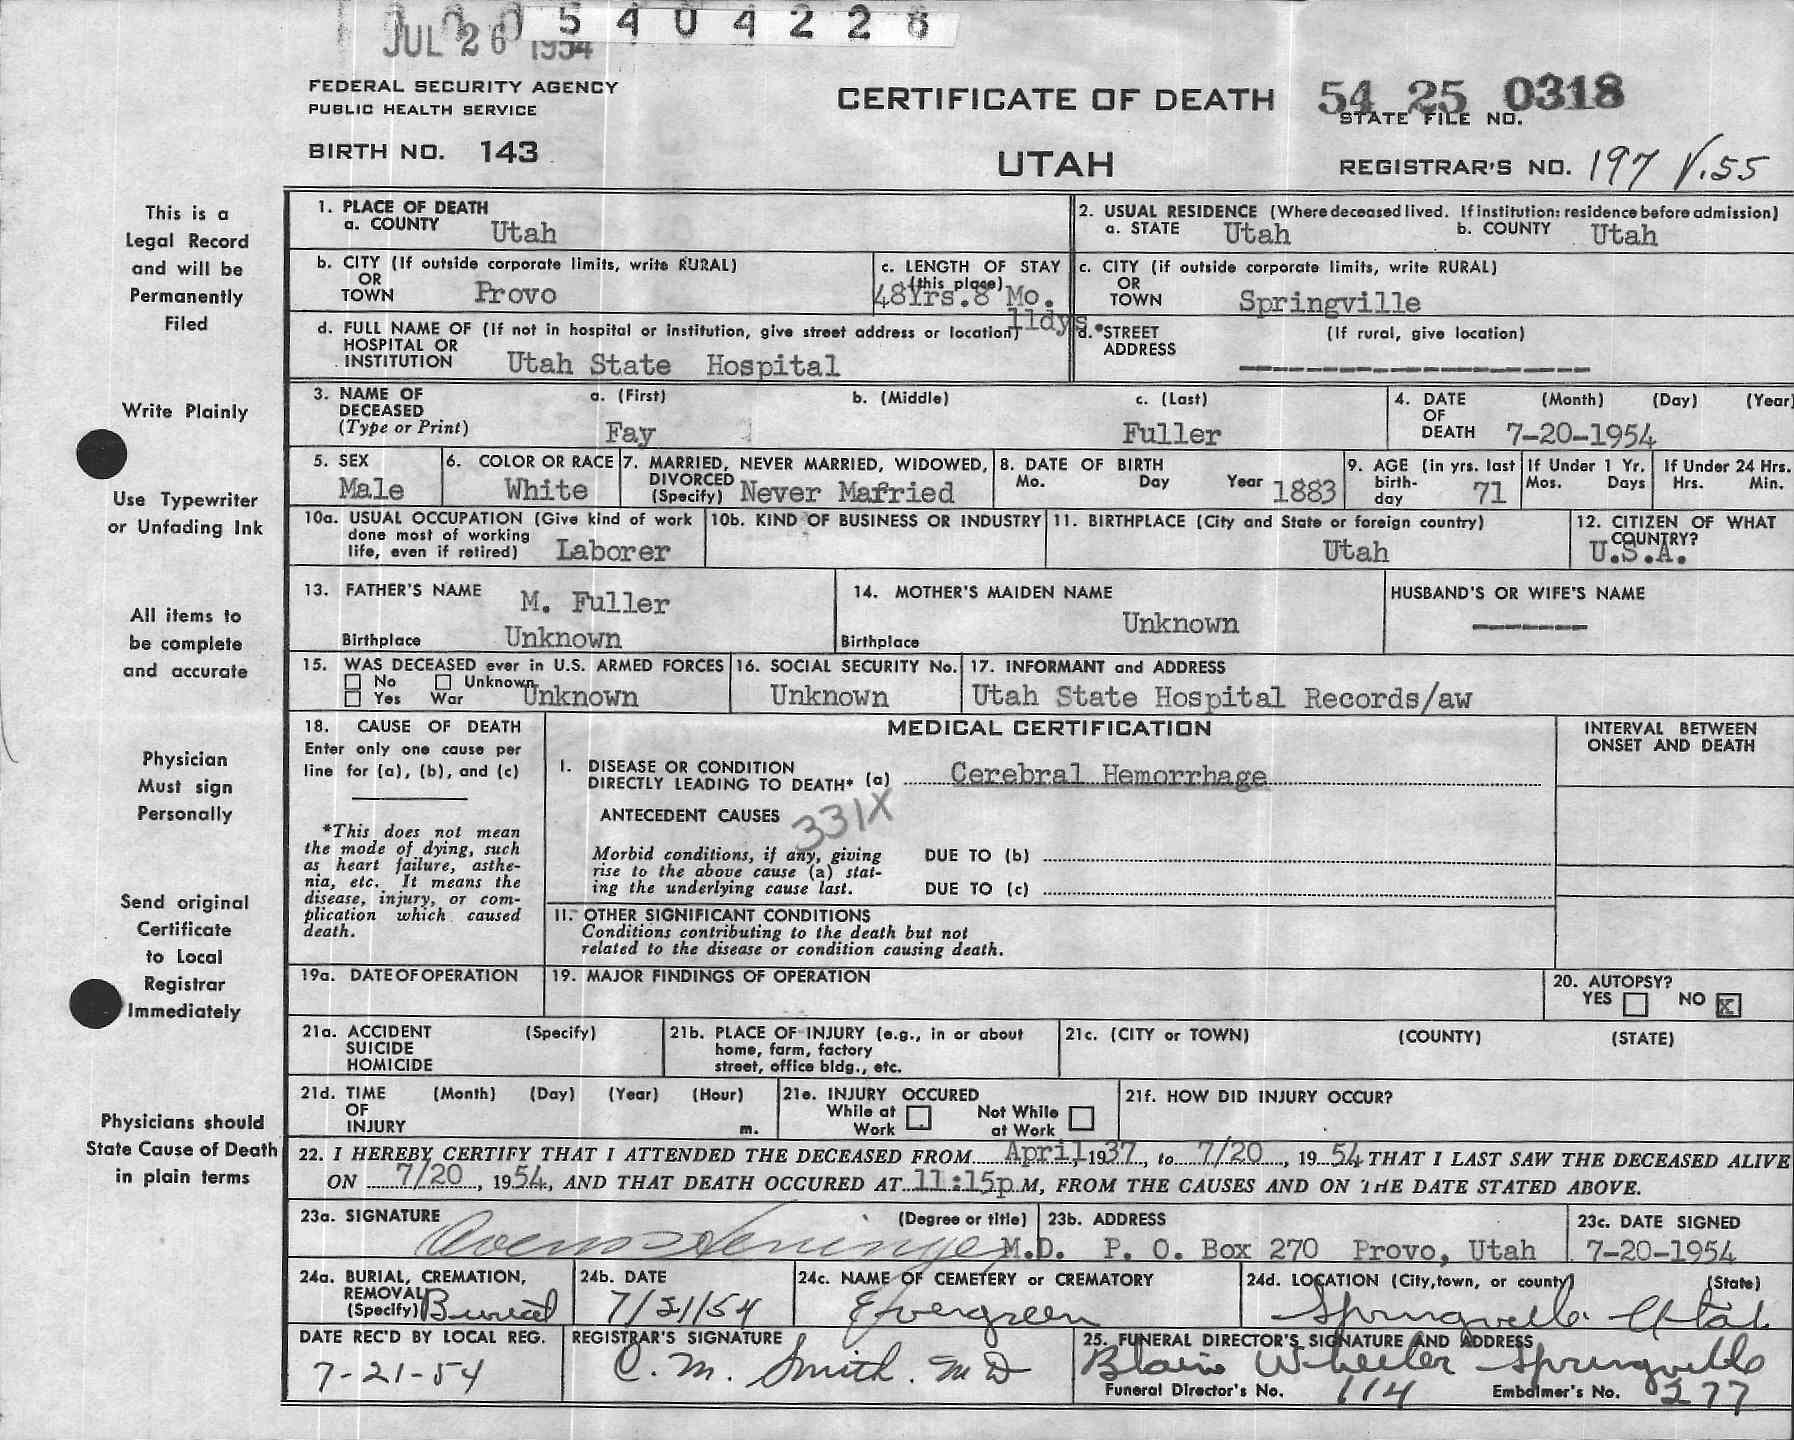 5404226
JUL 26 1954
FEDERAL SECURITY AGENCY
PUBLIC HEALTH SERVICE
CERTIFICATE OF DEATH
54 25 0318
STATE FILE NO.
BIRTH NO. 143
UTAH
REGISTRAR'S NO. 197 V.55
This is a
Legal Record
and will be
Permanently
Filed
Write Plainly
Use Typewriter
or Unfading Ink
All items to
be complete
and accurate
Physician
Must sign
Personally
Send original
Certificate
to Local
Registrar
Immediately
Physicians should
State Cause of Death
in plain terms
1. PLACE OF DEATH
a. COUNTY Utah
2. USUAL RESIDENCE (Where deceased lived. If institution: residence before admission)
a. STATE Utah b. COUNTY Utah
b. CITY (If outside corporate limits, write RURAL)
OR
TOWN Provo
c. LENGTH OF STAY
(this place)
48Yrs.8 Mo.
11dys.
c. CITY (if outside corporate limits, write RURAL)
OR
TOWN Springville
d. FULL NAME OF (If not in hospital or institution, give street address or location)
HOSPITAL OR
INSTITUTION Utah State Hospital
d. STREET (If rural, give location)
ADDRESS ----------------
3. NAME OF a. (First) b. (Middle) c. (Last)
DECEASED
(Type or Print) Fay Fuller
4. DATE (Month) (Day) (Year)
OF
DEATH 7-20-1954
5. SEX
Male
6. COLOR OR RACE
White
7. MARRIED, NEVER MARRIED, WIDOWED,
DIVORCED
(Specify) Never Married
8. DATE OF BIRTH
Mo. Day Year 1883
9. AGE (in yrs. last
birth-
day 71
If Under 1 Yr.
Mos. Days
If Under 24 Hrs.
Hrs. Min.
10a. USUAL OCCUPATION (Give kind of work
done most of working
life, even if retired) Laborer
10b. KIND OF BUSINESS OR INDUSTRY
11. BIRTHPLACE (City and State or foreign country)
Utah
12. CITIZEN OF WHAT
COUNTRY?
U.S.A.
13. FATHER'S NAME M. Fuller
Birthplace Unknown
14. MOTHER'S MAIDEN NAME
Unknown
Birthplace
HUSBAND'S OR WIFE'S NAME
-------
15. WAS DECEASED ever in U.S. ARMED FORCES
No Unknown
Yes War Unknown
16. SOCIAL SECURITY No.
Unknown
17. INFORMANT and ADDRESS
Utah State Hospital Records/aw
18. CAUSE OF DEATH
Enter only one cause per
line for (a), (b), and (c)
*This does not mean
the mode of dying, such
as heart failure, asthe-
nia, etc. It means the
disease, injury, or com-
plication which caused
death.
MEDICAL CERTIFICATION
INTERVAL BETWEEN
ONSET AND DEATH
I. DISEASE OR CONDITION
DIRECTLY LEADING TO DEATH* (a) Cerebral Hemorrhage
ANTECEDENT CAUSES
331X
Morbid conditions, if any, giving
rise to the above cause (a) stat-
ing the underlying cause last.
DUE TO (b)
DUE TO (c)
II. OTHER SIGNIFICANT CONDITIONS
Conditions contributing to the death but not
related to the disease or condition causing death.
19a. DATE OF OPERATION
19. MAJOR FINDINGS OF OPERATION
20. AUTOPSY?
YES NO X
21a. ACCIDENT (Specify)
SUICIDE
HOMICIDE
21b. PLACE OF INJURY (e.g., in or about
home, farm, factory
street, office bldg., etc.
21c. (CITY or TOWN) (COUNTY) (STATE)
21d. TIME (Month) (Day) (Year) (Hour)
OF
INJURY m.
21e. INJURY OCCURED
While at Work
Not While at Work
21f. HOW DID INJURY OCCUR?
22. I HEREBY CERTIFY THAT I ATTENDED THE DECEASED FROM April, 1937, to 7/20, 1954 THAT I LAST SAW THE DECEASED ALIVE
ON 7/20, 1954, AND THAT DEATH OCCURED AT 11:15p M, FROM THE CAUSES AND ON THE DATE STATED ABOVE.
23a. SIGNATURE (Degree or title)
M.D.
23b. ADDRESS
P. O. Box 270 Provo, Utah
23c. DATE SIGNED
7-20-1954
24a. BURIAL, CREMATION,
REMOVAL
(Specify) Burial
24b. DATE
7/21/54
24c. NAME OF CEMETERY or CREMATORY
Evergreen
24d. LOCATION (City, town, or county) (State)
Springville Utah
DATE REC'D BY LOCAL REG.
7-21-54
REGISTRAR'S SIGNATURE
C. M. Smith. MD
25. FUNERAL DIRECTOR'S SIGNATURE AND ADDRESS
Blaine Wheeler Springville
Funeral Director's No. 114 Embalmer's No. 277